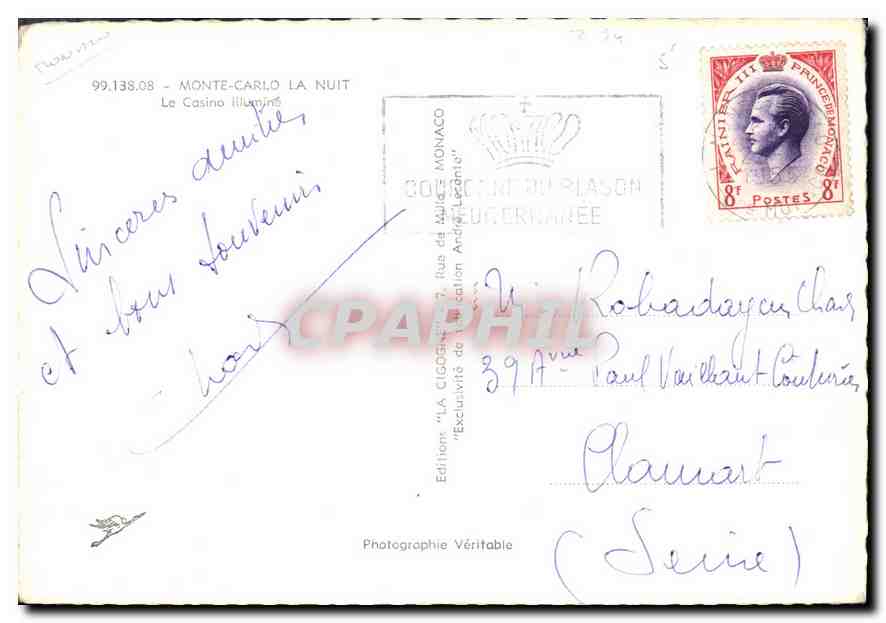 99.138.08 - MONTE-CARLO LA NUIT
Le Casino illuminé
Sincères amitiés
et bons souvenirs
Editions "LA CIGOGNE" 7, Rue de Mulo - MONACO
"Exclusivité de Fabrication André Leconte"
COURONNE DU BLASON
MEDITERRANEE
RAINIER III PRINCE DE MONACO
8F POSTES 8F
CPAPHIL
39 Avnue Paul Vaillant Couturier
Clamart
(Seine)
Photographie Véritable